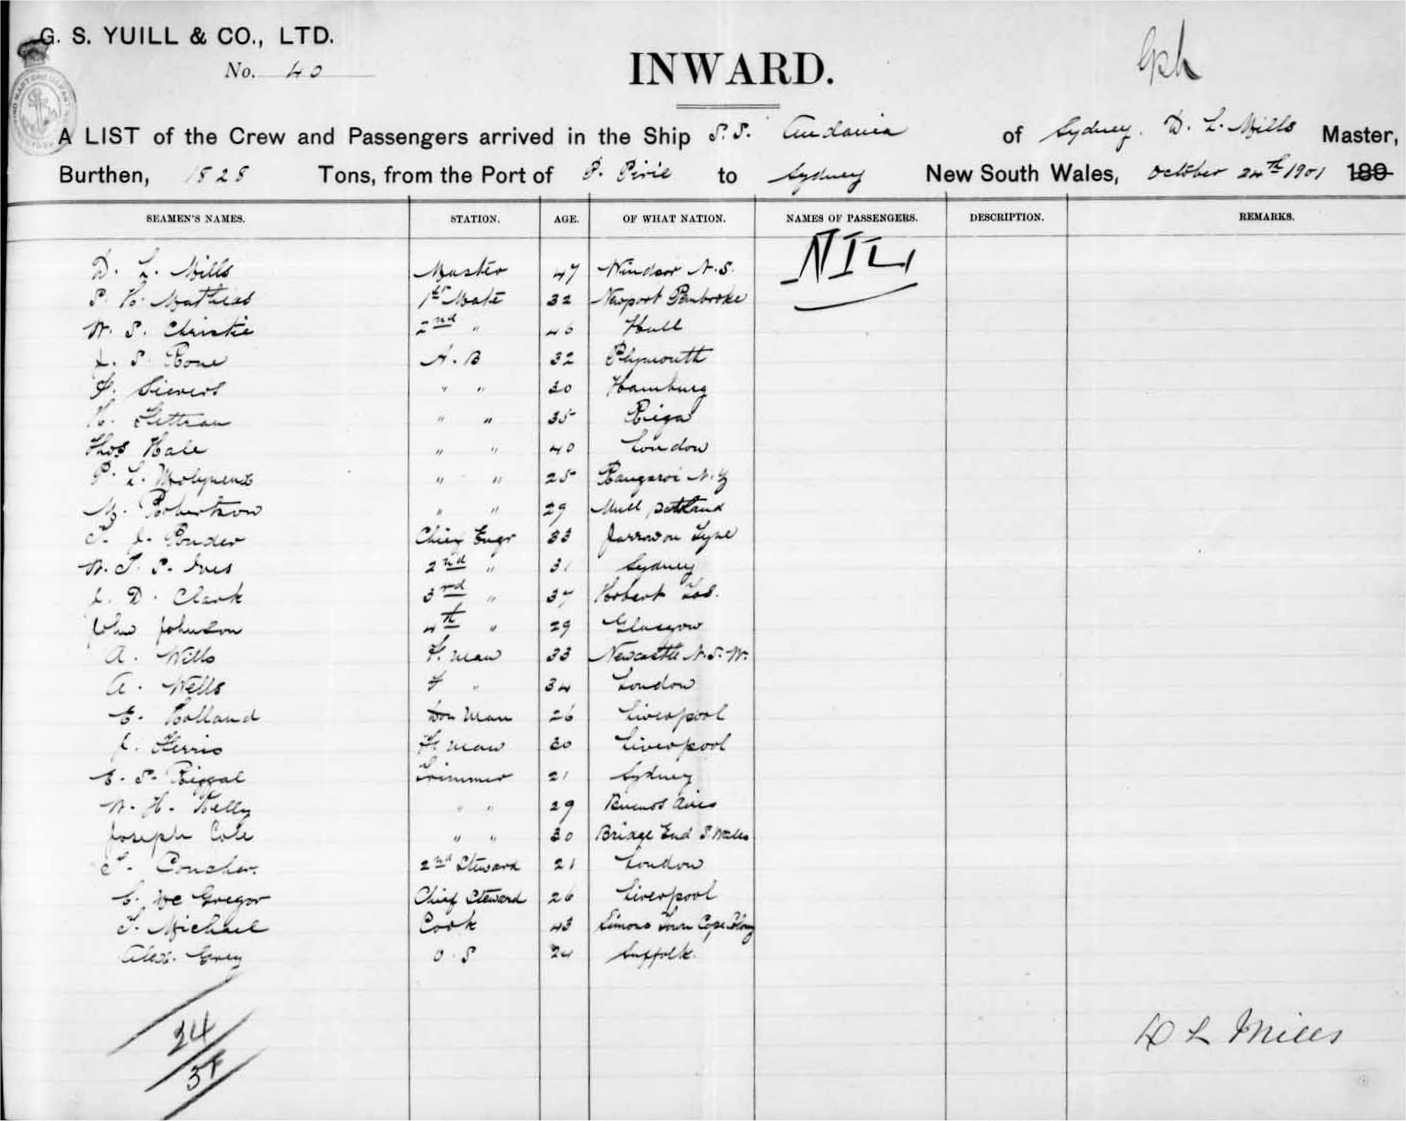 G. S. YUILL & CO., LTD.
No. 40
INWARD.
A LIST of the Crew and Passengers arrived in the Ship S.S. Andania of Sydney. D. L. Mills Master,
Burthen, 1828 Tons, from the Port of P. Pirie to Sydney New South Wales, October 24th 1901 189
SEAMEN'S NAMES. STATION. AGE. OF WHAT NATION. NAMES OF PASSENGERS. DESCRIPTION. REMARKS.
NIL
D. L. Mills Master 47 Windsor N.S.
P. H. Mathias 1st Mate 32 Newport Pembroke
W. S. Christie 2nd " 46 Hull
J. S. Rone A.B 32 Plymouth
Sievers " " 30 Hamburg
H. " " 35 Riga
Thos Hale " " 40 London
P. L. Molyneux " " 25 N.Z
M. Robertson " " 29 Mull Scotland
T. J. Ponder Chief Engr 33 Jarrow on Tyne
W. T. P. Ives 2nd " 31 Sydney
J. D. Clark 3rd " 37 Hobart Tas.
John Johnson 4th " 29 Glasgow
A. Wills F. man 33 Newcastle N.S.W.
A. Wells F " 34 London
E. Holland Don Man 26 Liverpool
J. Ferris F. man 30 Liverpool
E. P. Trimmer 21 Sydney
W. H. Kelly " " 29 Buenos Aires
Joseph Cole " " 30 Bridge End S Wales
2nd Steward 21 London
Mc Gregor Chief Steward 26 Liverpool
T. Michael Cook 43 Simons Town Cape Colony
Alex. Grey O.S 24 Suffolk.
24
D L Mills